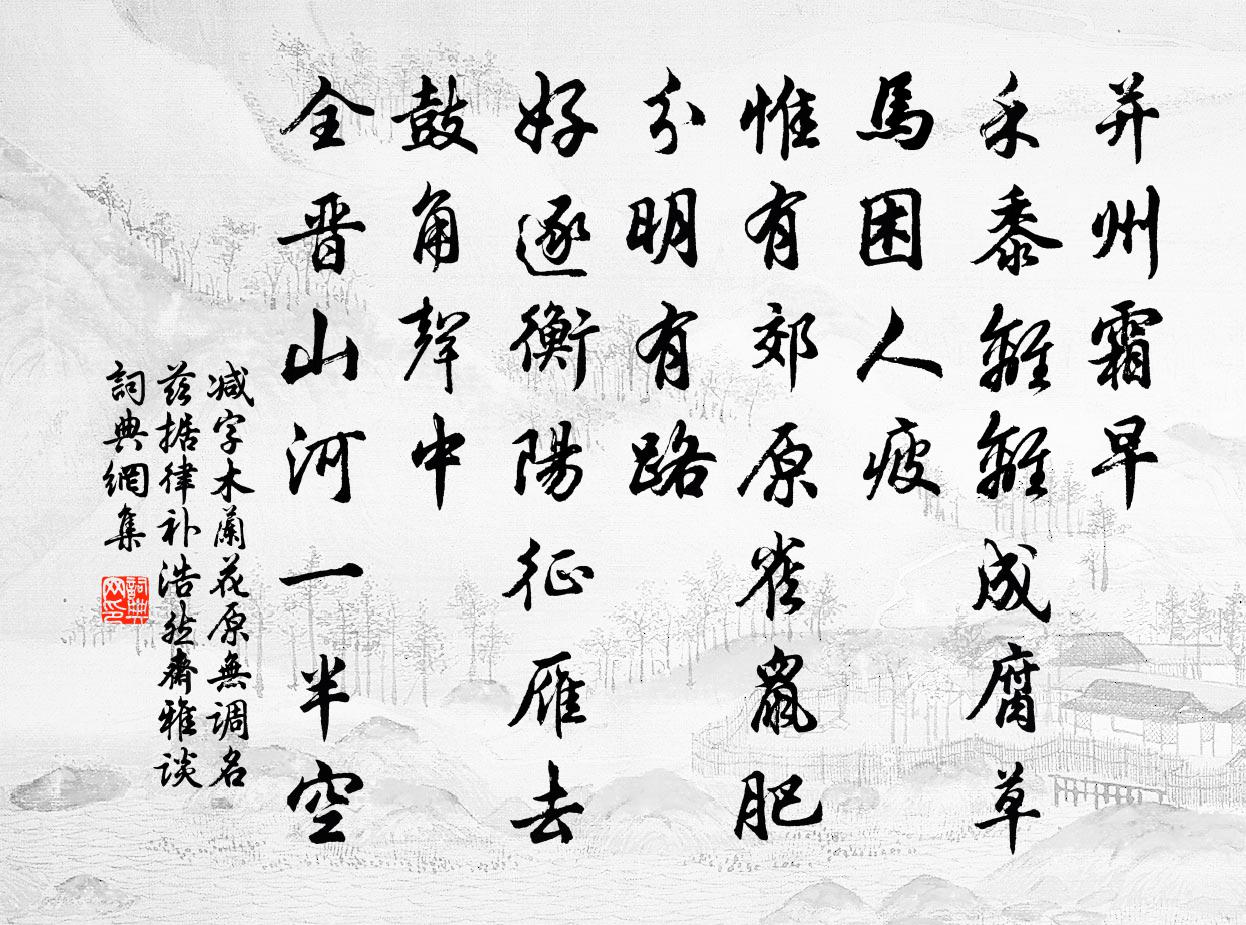 并州霜早
禾黍離離成腐草
馬困人疲
惟有郊原雀鼠肥
分明有路
好逐衡陽征雁去
鼓角聲中
全晋山河一半空
减字木蘭花原無調名
兹据律补浩然齋雅谈
詞典網集